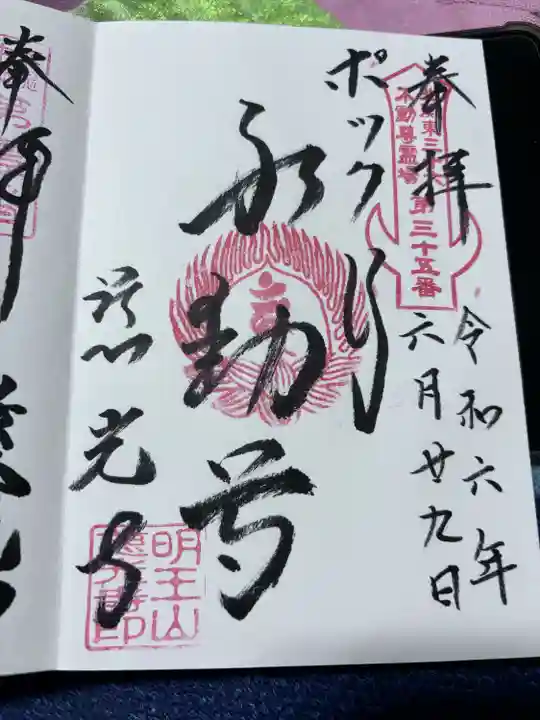 奉拝
関東三
不動尊霊場
第三十五番
令和六年
六月廿九日
ポックリ
不動尊
光寺
明王山
光寺印
奉拝